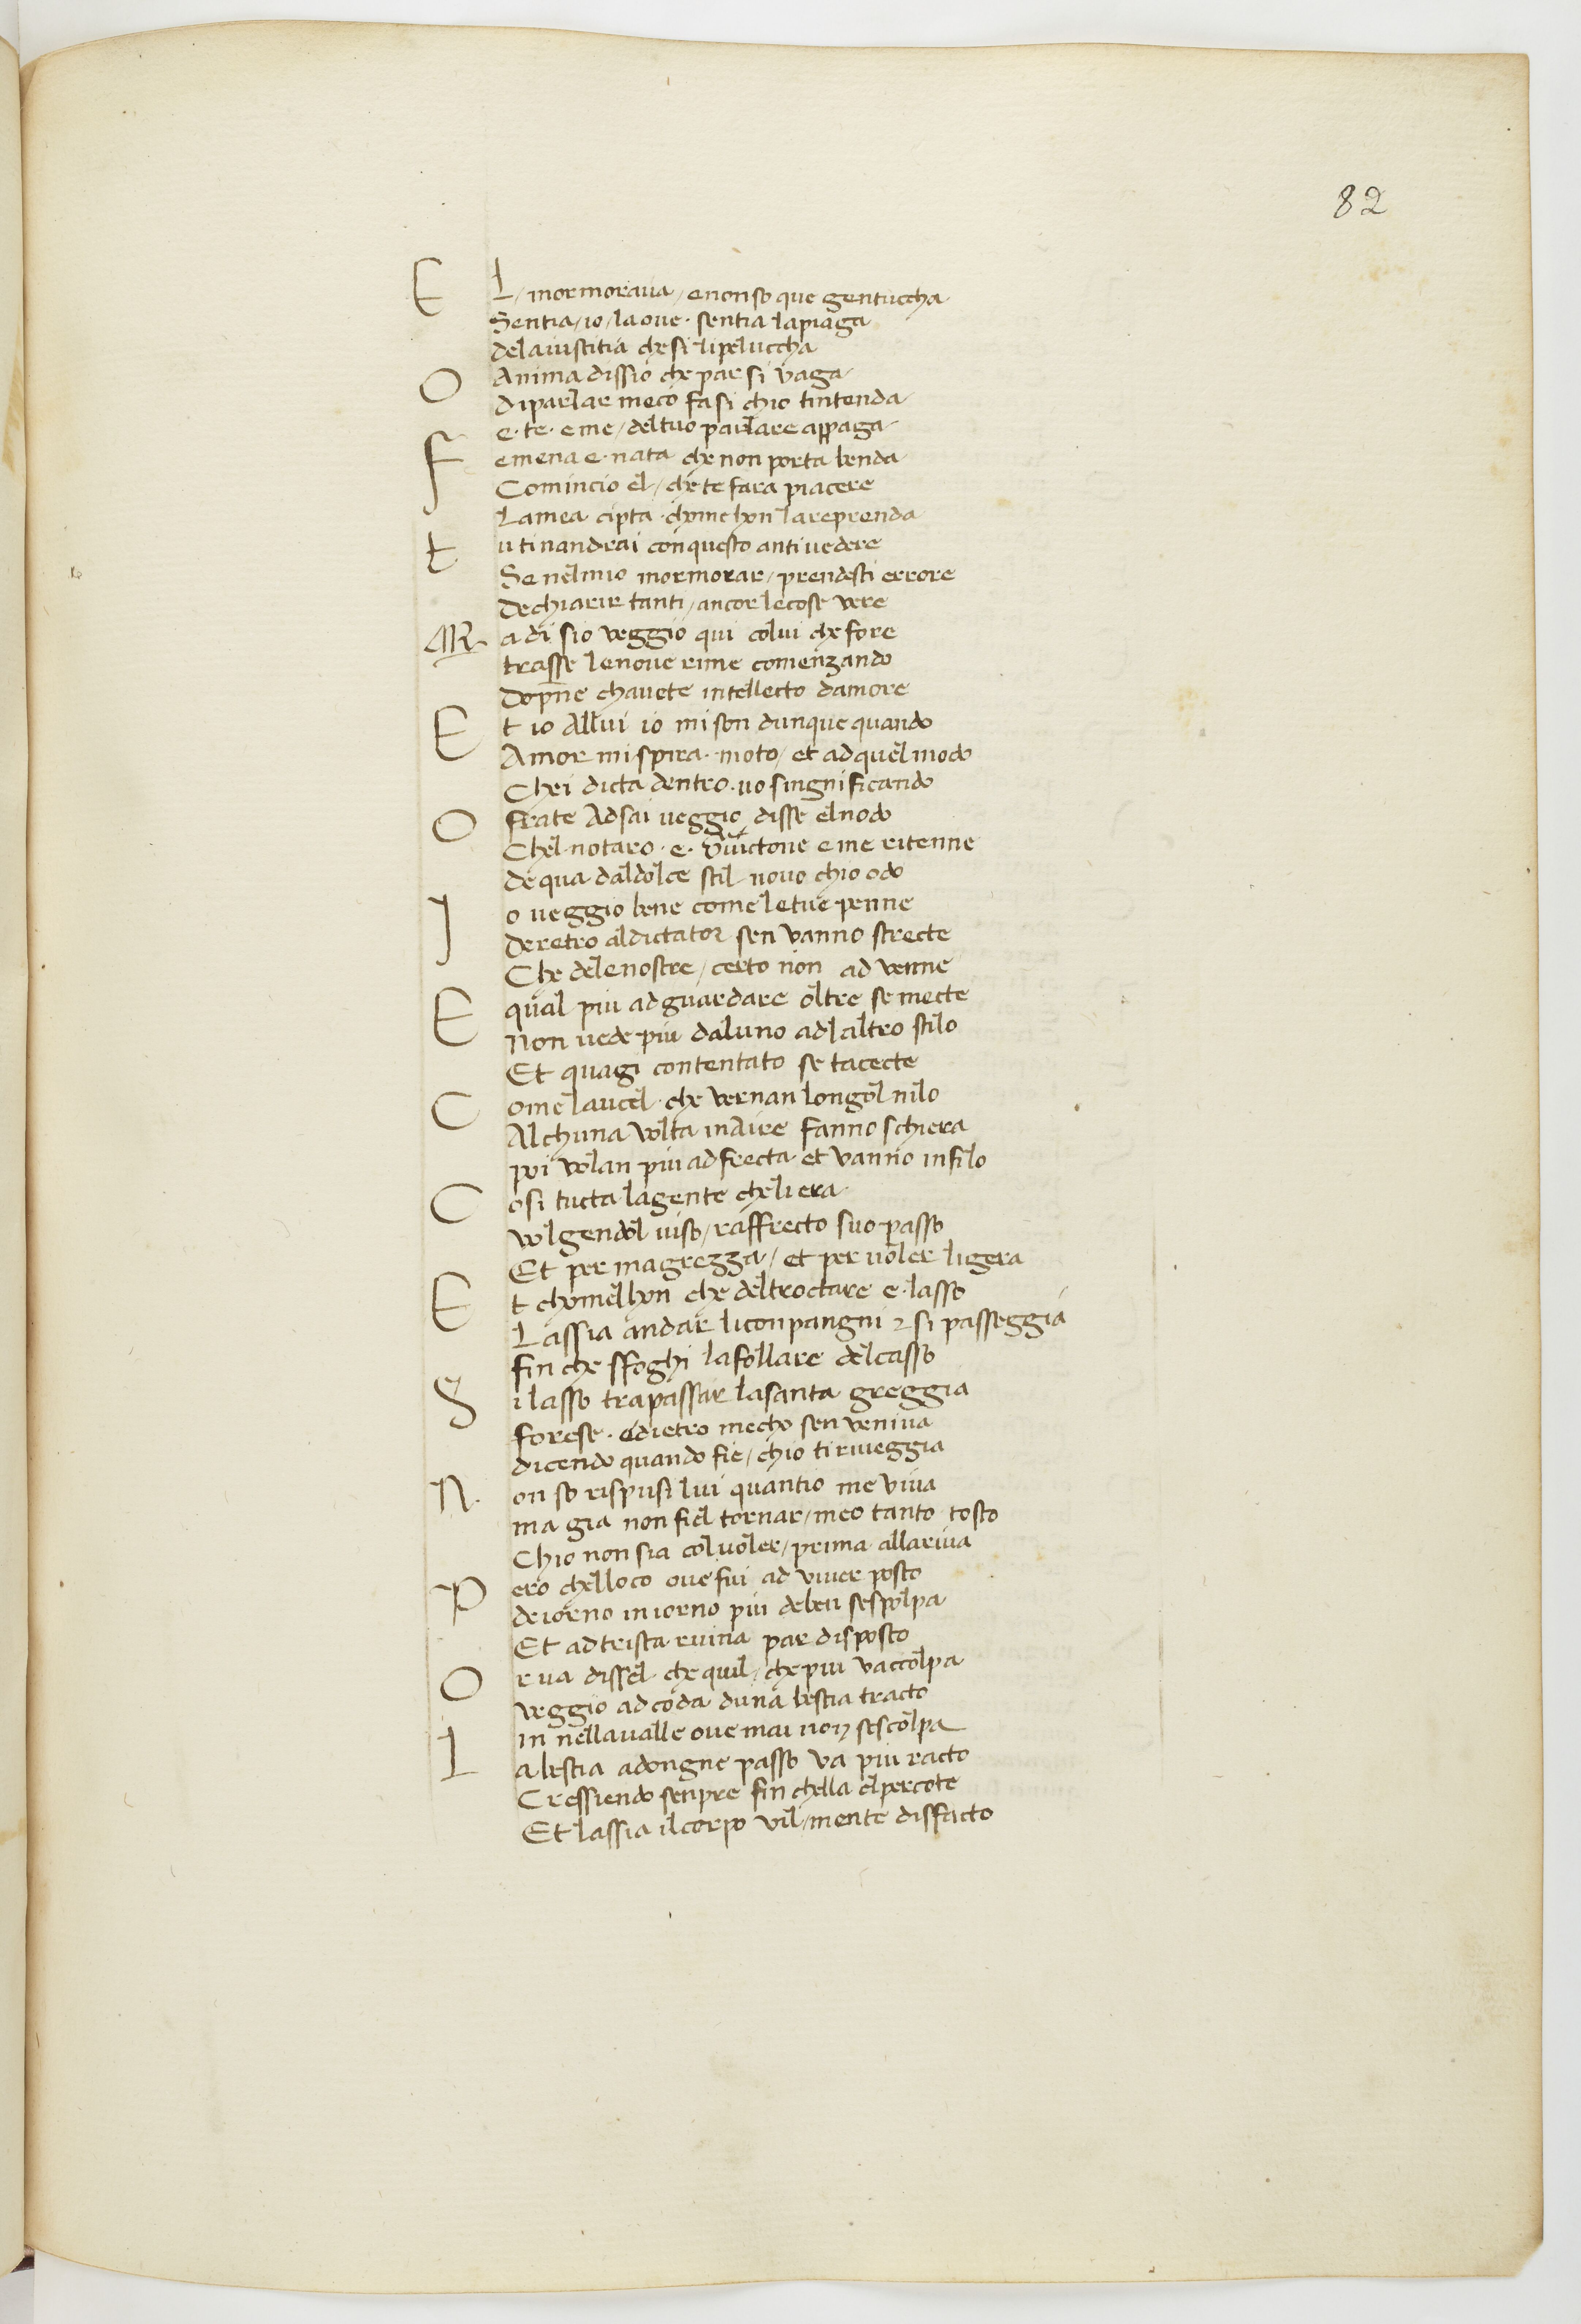 82
E L / mormoraua / enonso que gentuccha
Sentia / io / laoue · sentia lapiaga
delaiustitia che si lipeluccha
O Anima dissio che par si vaga
diparlar meco fasi chio tintenda
e · te · eme / deltuo parlare appaga
F emena e · nata che non porta benda
Comincio el / che te fara piacere
Lamea cipta · chomehon lareprenda
t u tinandrai conquesto antiuedere
Se nelmio mormorar / prendesti errore
dechiarir tanti / ancor lecose vere
M a di sio veggio qui colui che fore
trasse lenoue rime comenzando
dopne chauete intellecto damore
E t io Allui io mi son dunque quando
Amor mi spira · moto / et adquel modo
Chei dicta dentro · uo singnificando
O frate Adsai ueggio disse elnodo
Chel notaro · e · Guictone eme ritenne
de qua daldolce stil nouo chio odo
I o ueggio bene come letue penne
deretro aldictator sen vanno strecte
Che delenostre / certo non ad venne
E qual piu adguardare oltre se mecte
Non uede piu daluno adlaltro stilo
Et quagi contentato se tacecte
C ome laucel · che vernan longol nilo
Alchuna volta inAire fanno schiera
poi volan piu adfrecta et vanno infilo
C osi tucta lagente cheliera
volgendol uiso / raffrecto suo passo
Et per magrezza / et per uoler ligera
E t chomelhon che deltroctare e · lasso
Lassia andar liconpangni & si passeggia
fin che sfoghi lafollare delcasso
S i lasso trapassar lasanta greggia
forese · edietro mecho sen veniua
dicendo quando fie / chio tiriueggia
N on so rispusi lui quantio me viua
ma gia non fiel tornar / meo tanto tosto
Chio non sia coluoler / prima allariua
P ero chelloco oue fui ad viuer posto
deiorno iniorno piu deben sespolpa
Et adtrista ruina par disposto
O r ua dissel · che quil / che piu vaccolpa
veggio adcoda duna bestia tracto
in nellaualle oue mai non sescolpa
L a bestia adongne passo va piu racto
Cressiendo senpre fin chella elpercote
Et lassia ilcorpo vil / mente disfacto